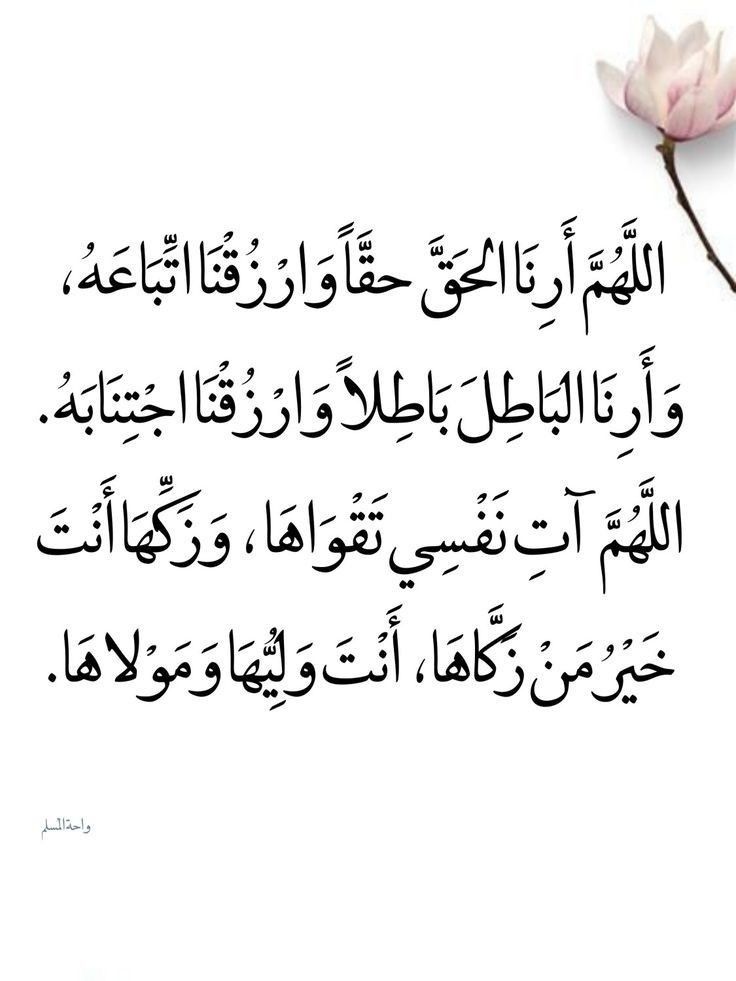 اللَّهُمَّ أَرِنَا الحَقَّ حقَّاً وَارْزُقْنَا اتِّبَاعَهُ،
وَأَرِنَا البَاطِلَ بَاطِلاً وَارْزُقْنَا اجْتِنَابَهُ.
اللَّهُمَّ آتِ نَفْسِي تَقْوَاهَا، وَزَكِّهَا أَنْتَ
خَيْرُ مَنْ زَكَّاهَا، أَنْتَ وَلِيُّهَا وَمَوْلاهَا.
واحة المسلم